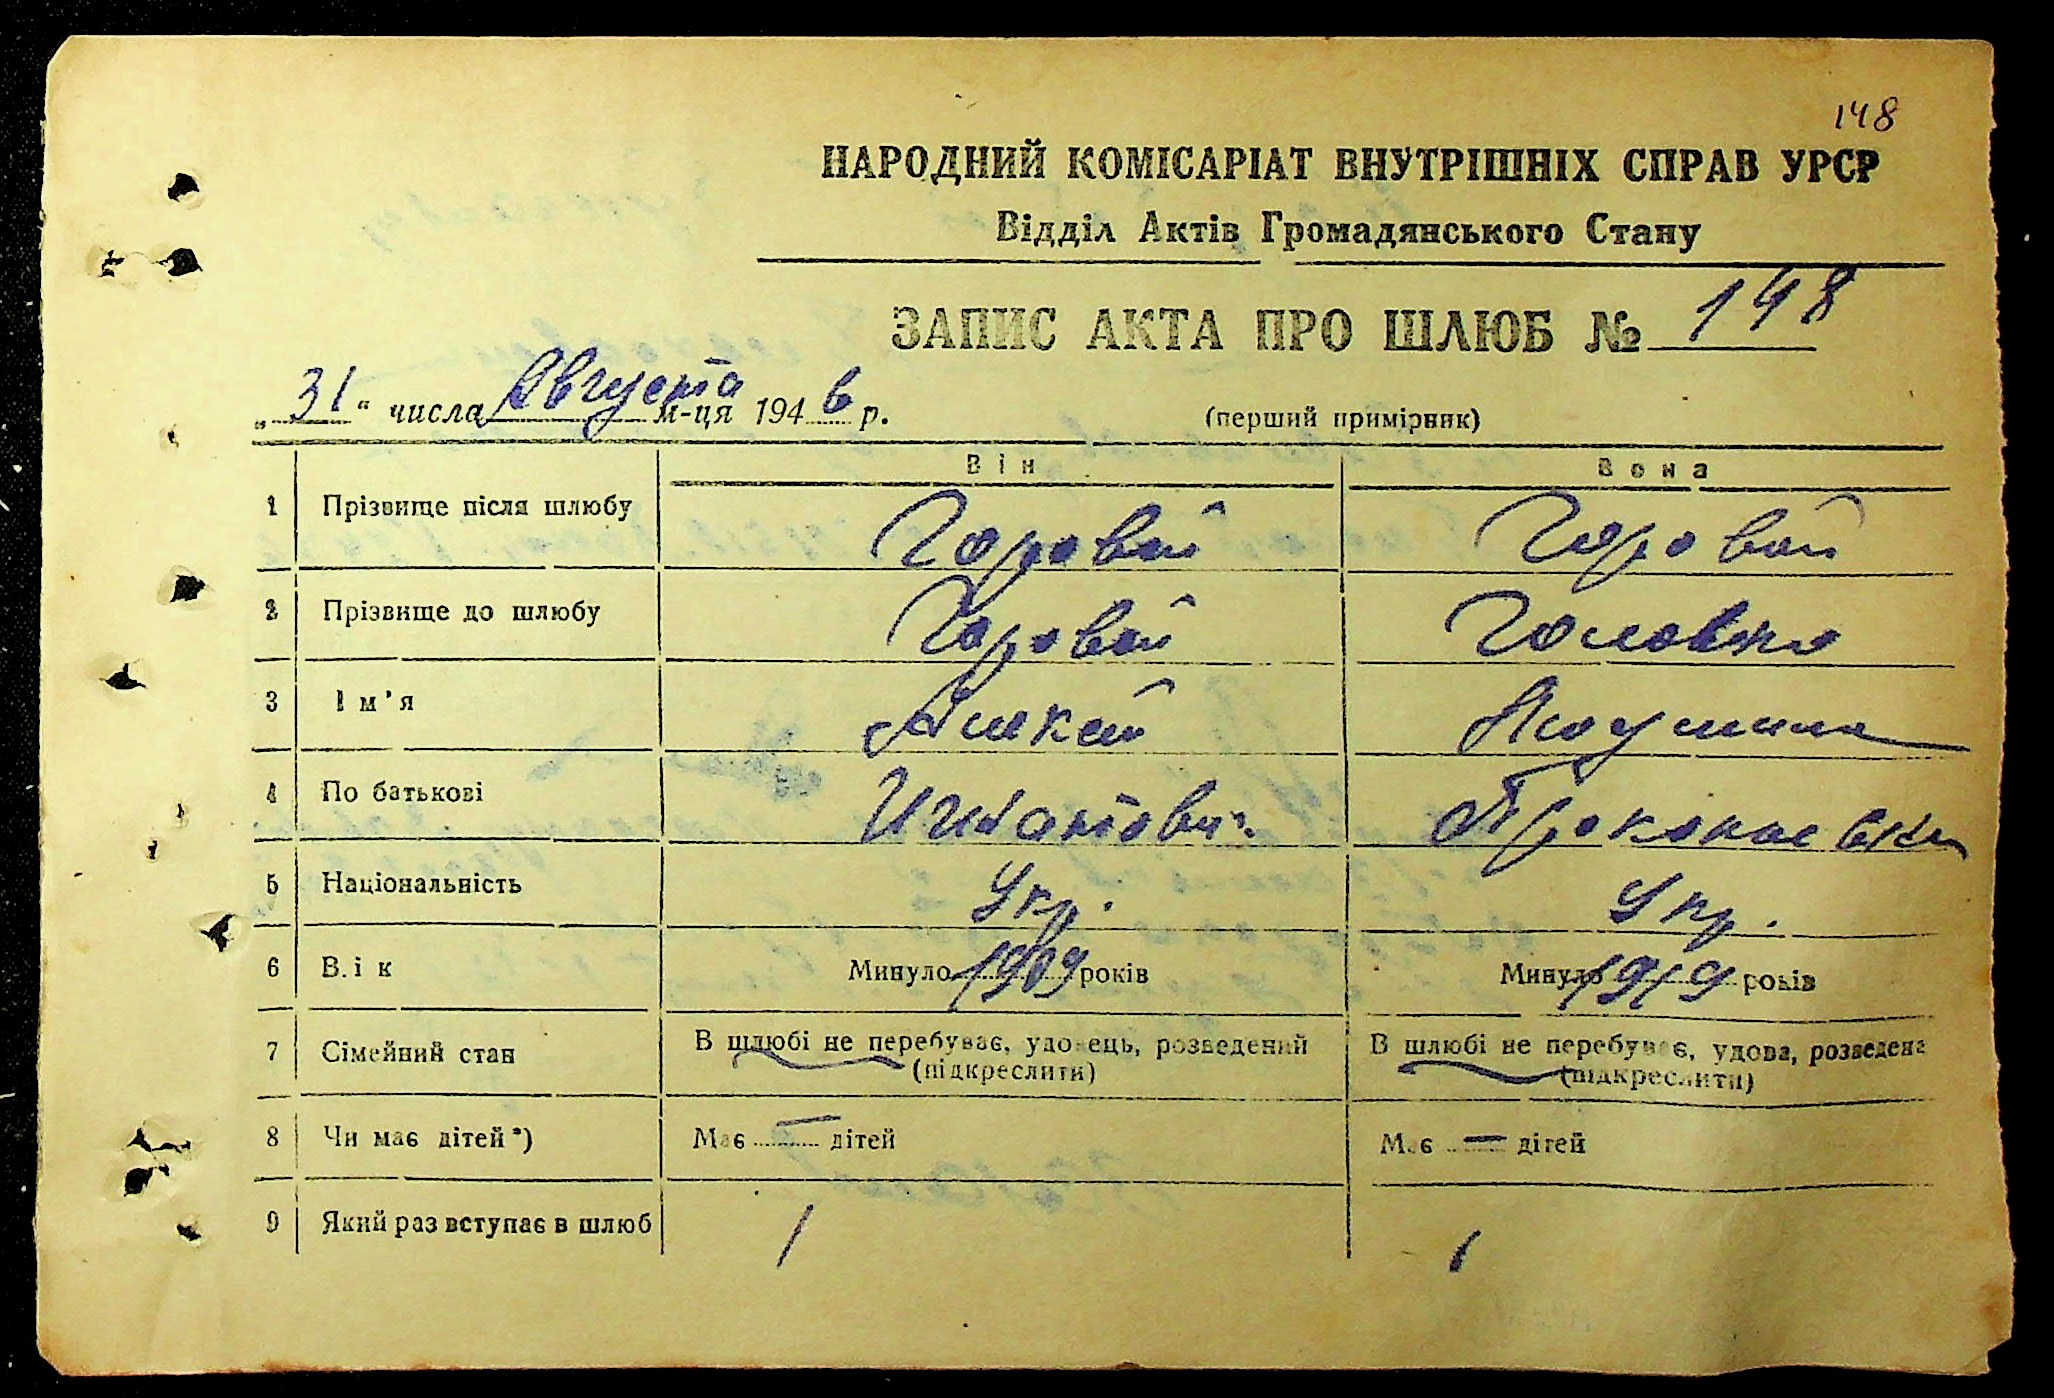 148
НАРОДНИЙ КОМІСАРІАТ ВНУТРІШНІХ СПРАВ УРСР
Відділ Актів Громадянського Стану
ЗАПИС АКТА ПРО ШЛЮБ № 148
„31“ числа Августа м-ця 1946 р.
(перший примірник)
Він Вона
1 Прізвище після шлюбу Горовой Горовой
2 Прізвище до шлюбу Горовой Головко
3 Ім'я
4 По батькові Игнатович
5 Національність Укр. Укр.
6 Вік Минуло 1909 років Минуло 1919 років
7 Сімейний стан В шлюбі не перебуває, удовець, розведений В шлюбі не перебуває, удова, розведена
(підкреслити) (підкреслити)
8 Чи має дітей*) Має — дітей Має — дітей
9 Який раз вступає в шлюб 1 1